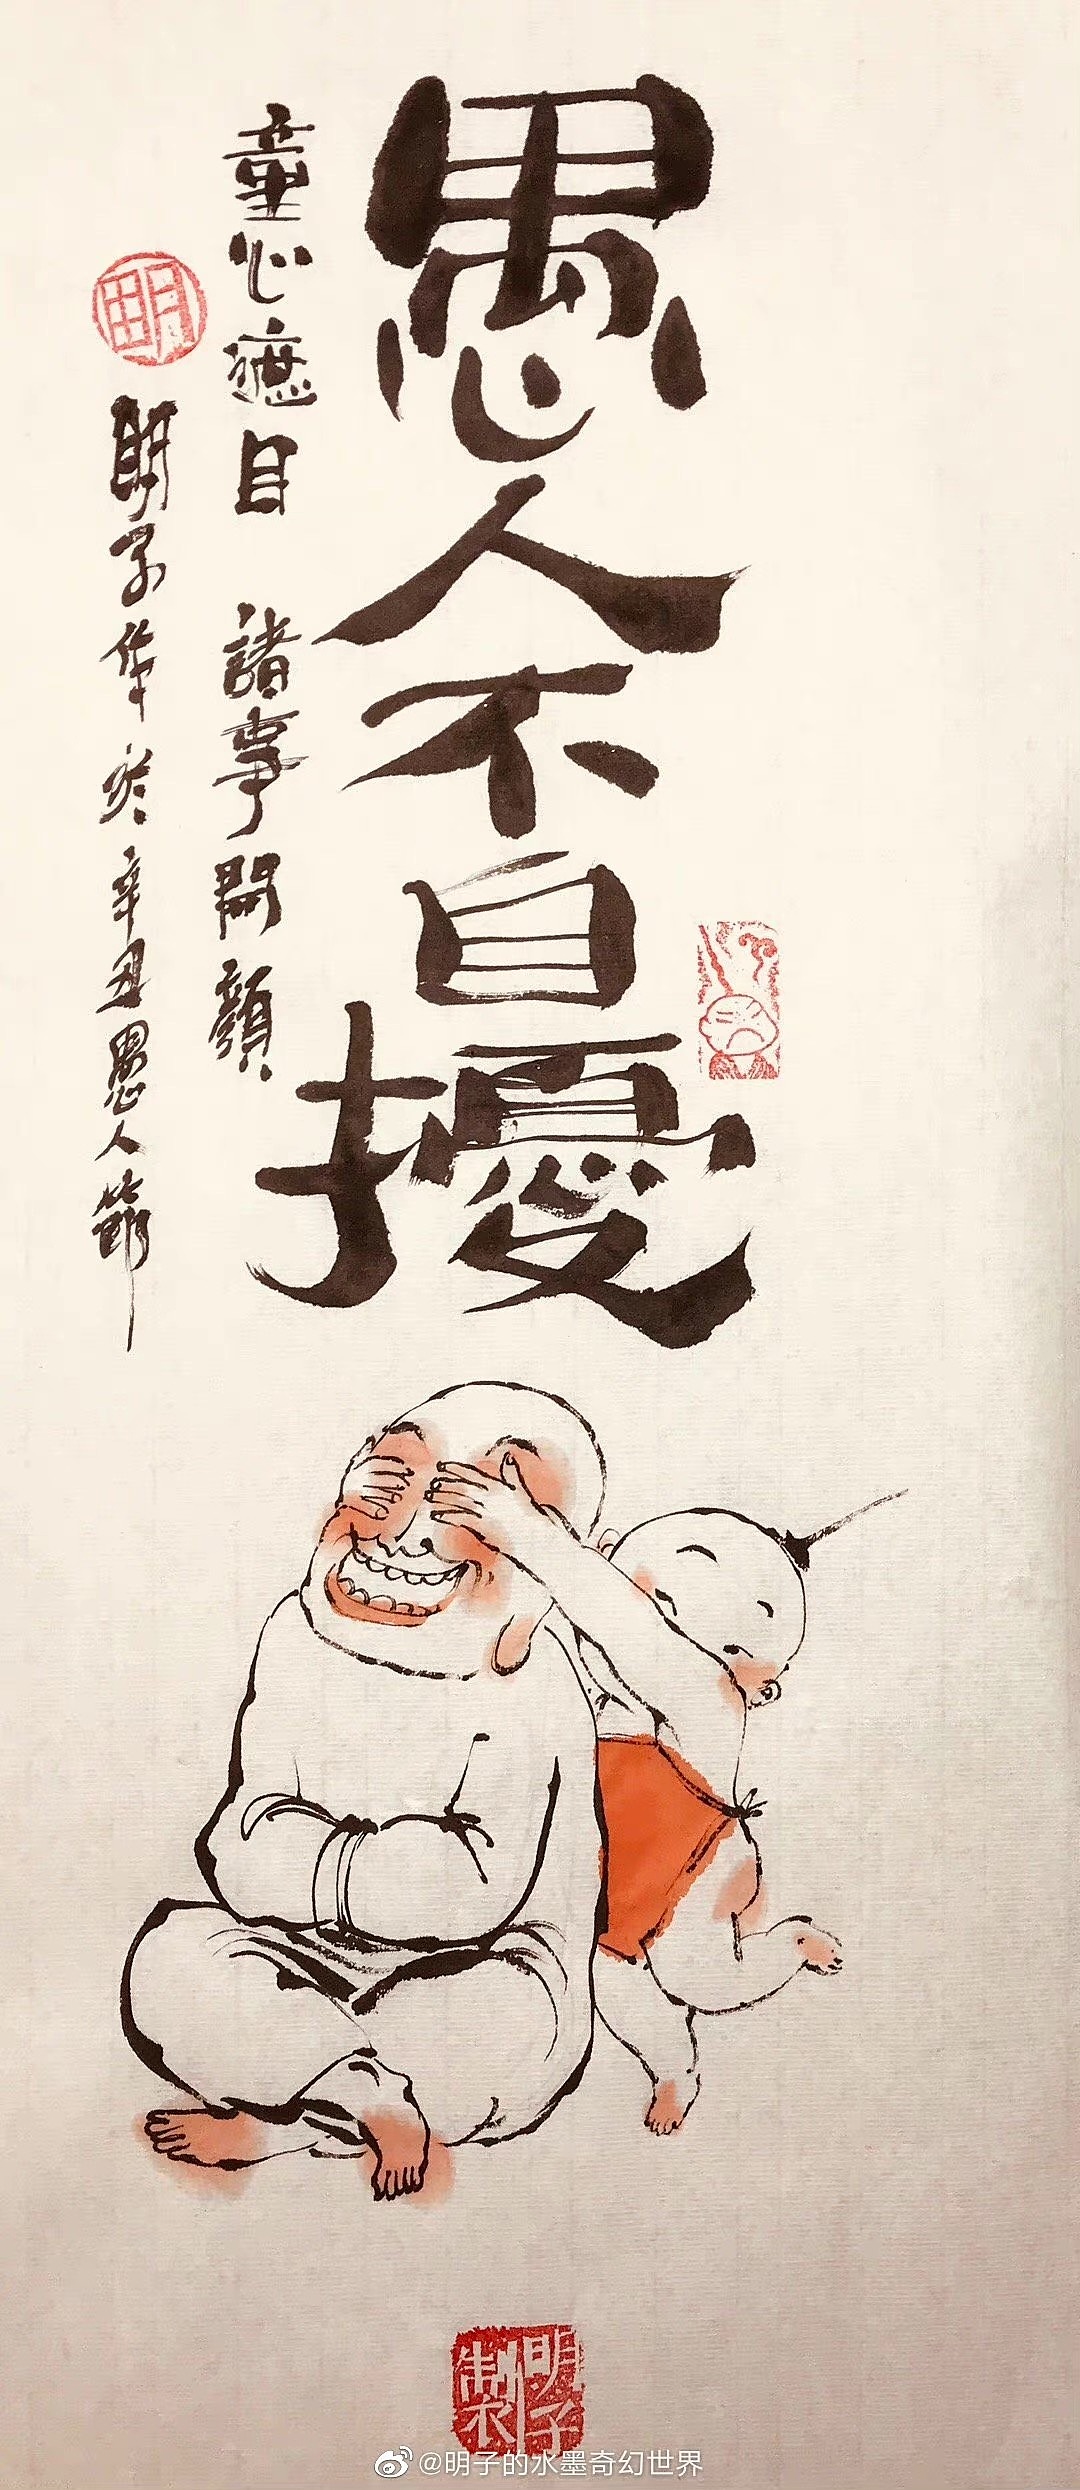 愚人不自擾
童心遮目 諸事開顏
明子作於辛丑愚人節
明
明子製
@明子的水墨奇幻世界